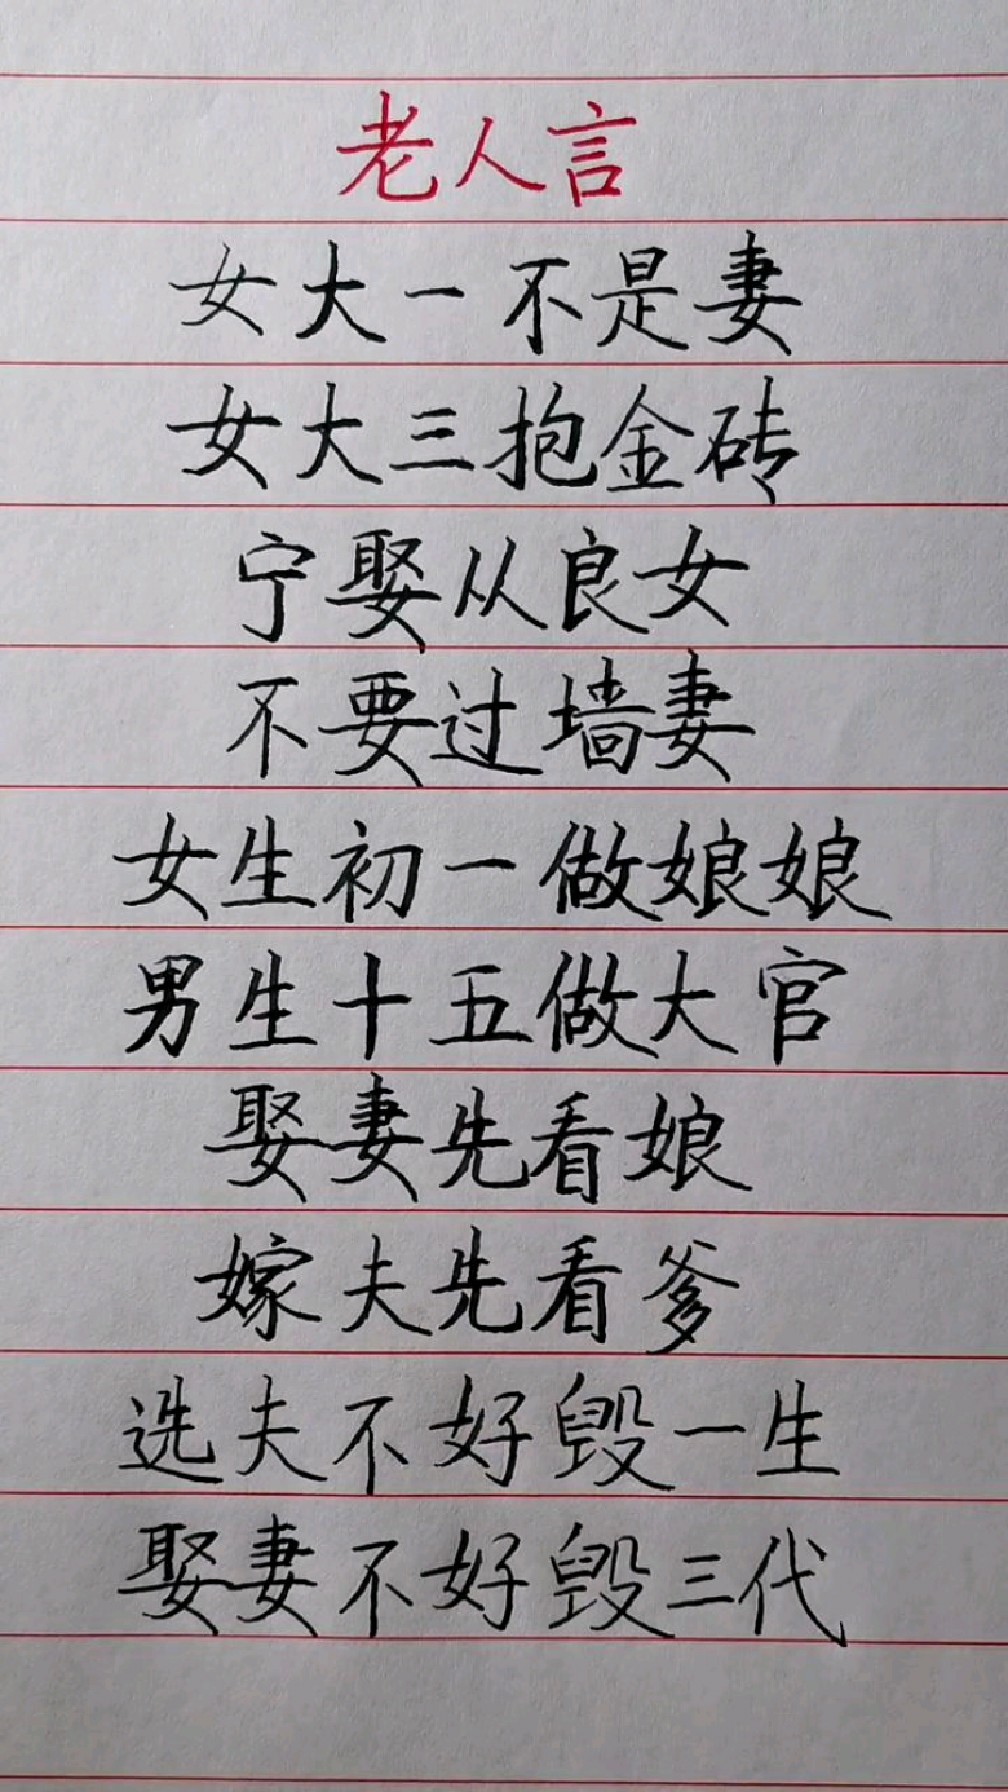 老人言
女大一不是妻
女大三抱金砖
宁娶从良女
不要过墙妻
女生初一做娘娘
男生十五做大官
娶妻先看娘
嫁夫先看爹
选夫不好毁一生
娶妻不好毁三代